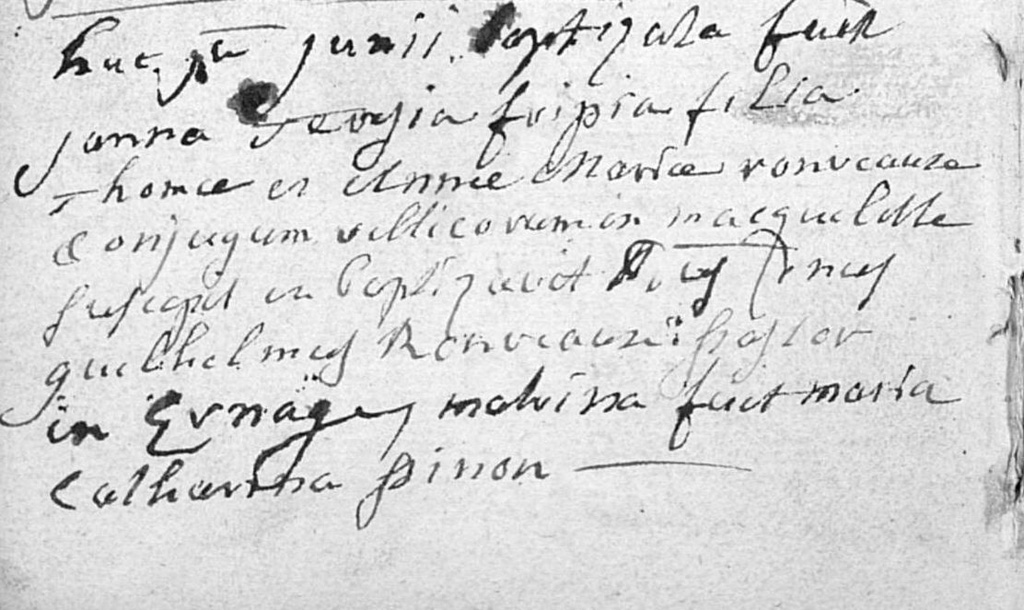 junii baptizata fuit
Janna fripia filia
Thomae et Annae Mariae ronveause
Conjugum villicorum in macquelette
suscepit et baptizavit
guilhelmus Ronveause pastor
in Ernage, matrina fuit maria
Catharina pinon